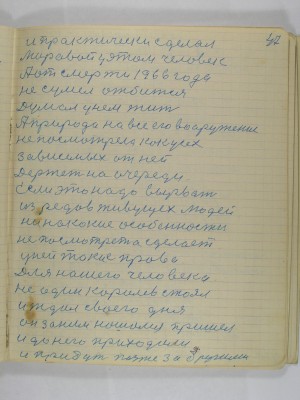 42
и практически сделал
А от смерти 1966 года
не сумел отбится
Думал унем жит
А природа на все его вооружение
не посмотрела как у сех
зависимых от ней
Держет на очереди
Если это надо вырват
из редов живущех людей
ни на какие особенности
не посмотрет а сделает
уней такие права
Для нашего человека
не один король стоял
и ждал своего дня
он заним пришел
и до него приходили
и придут позже за другими